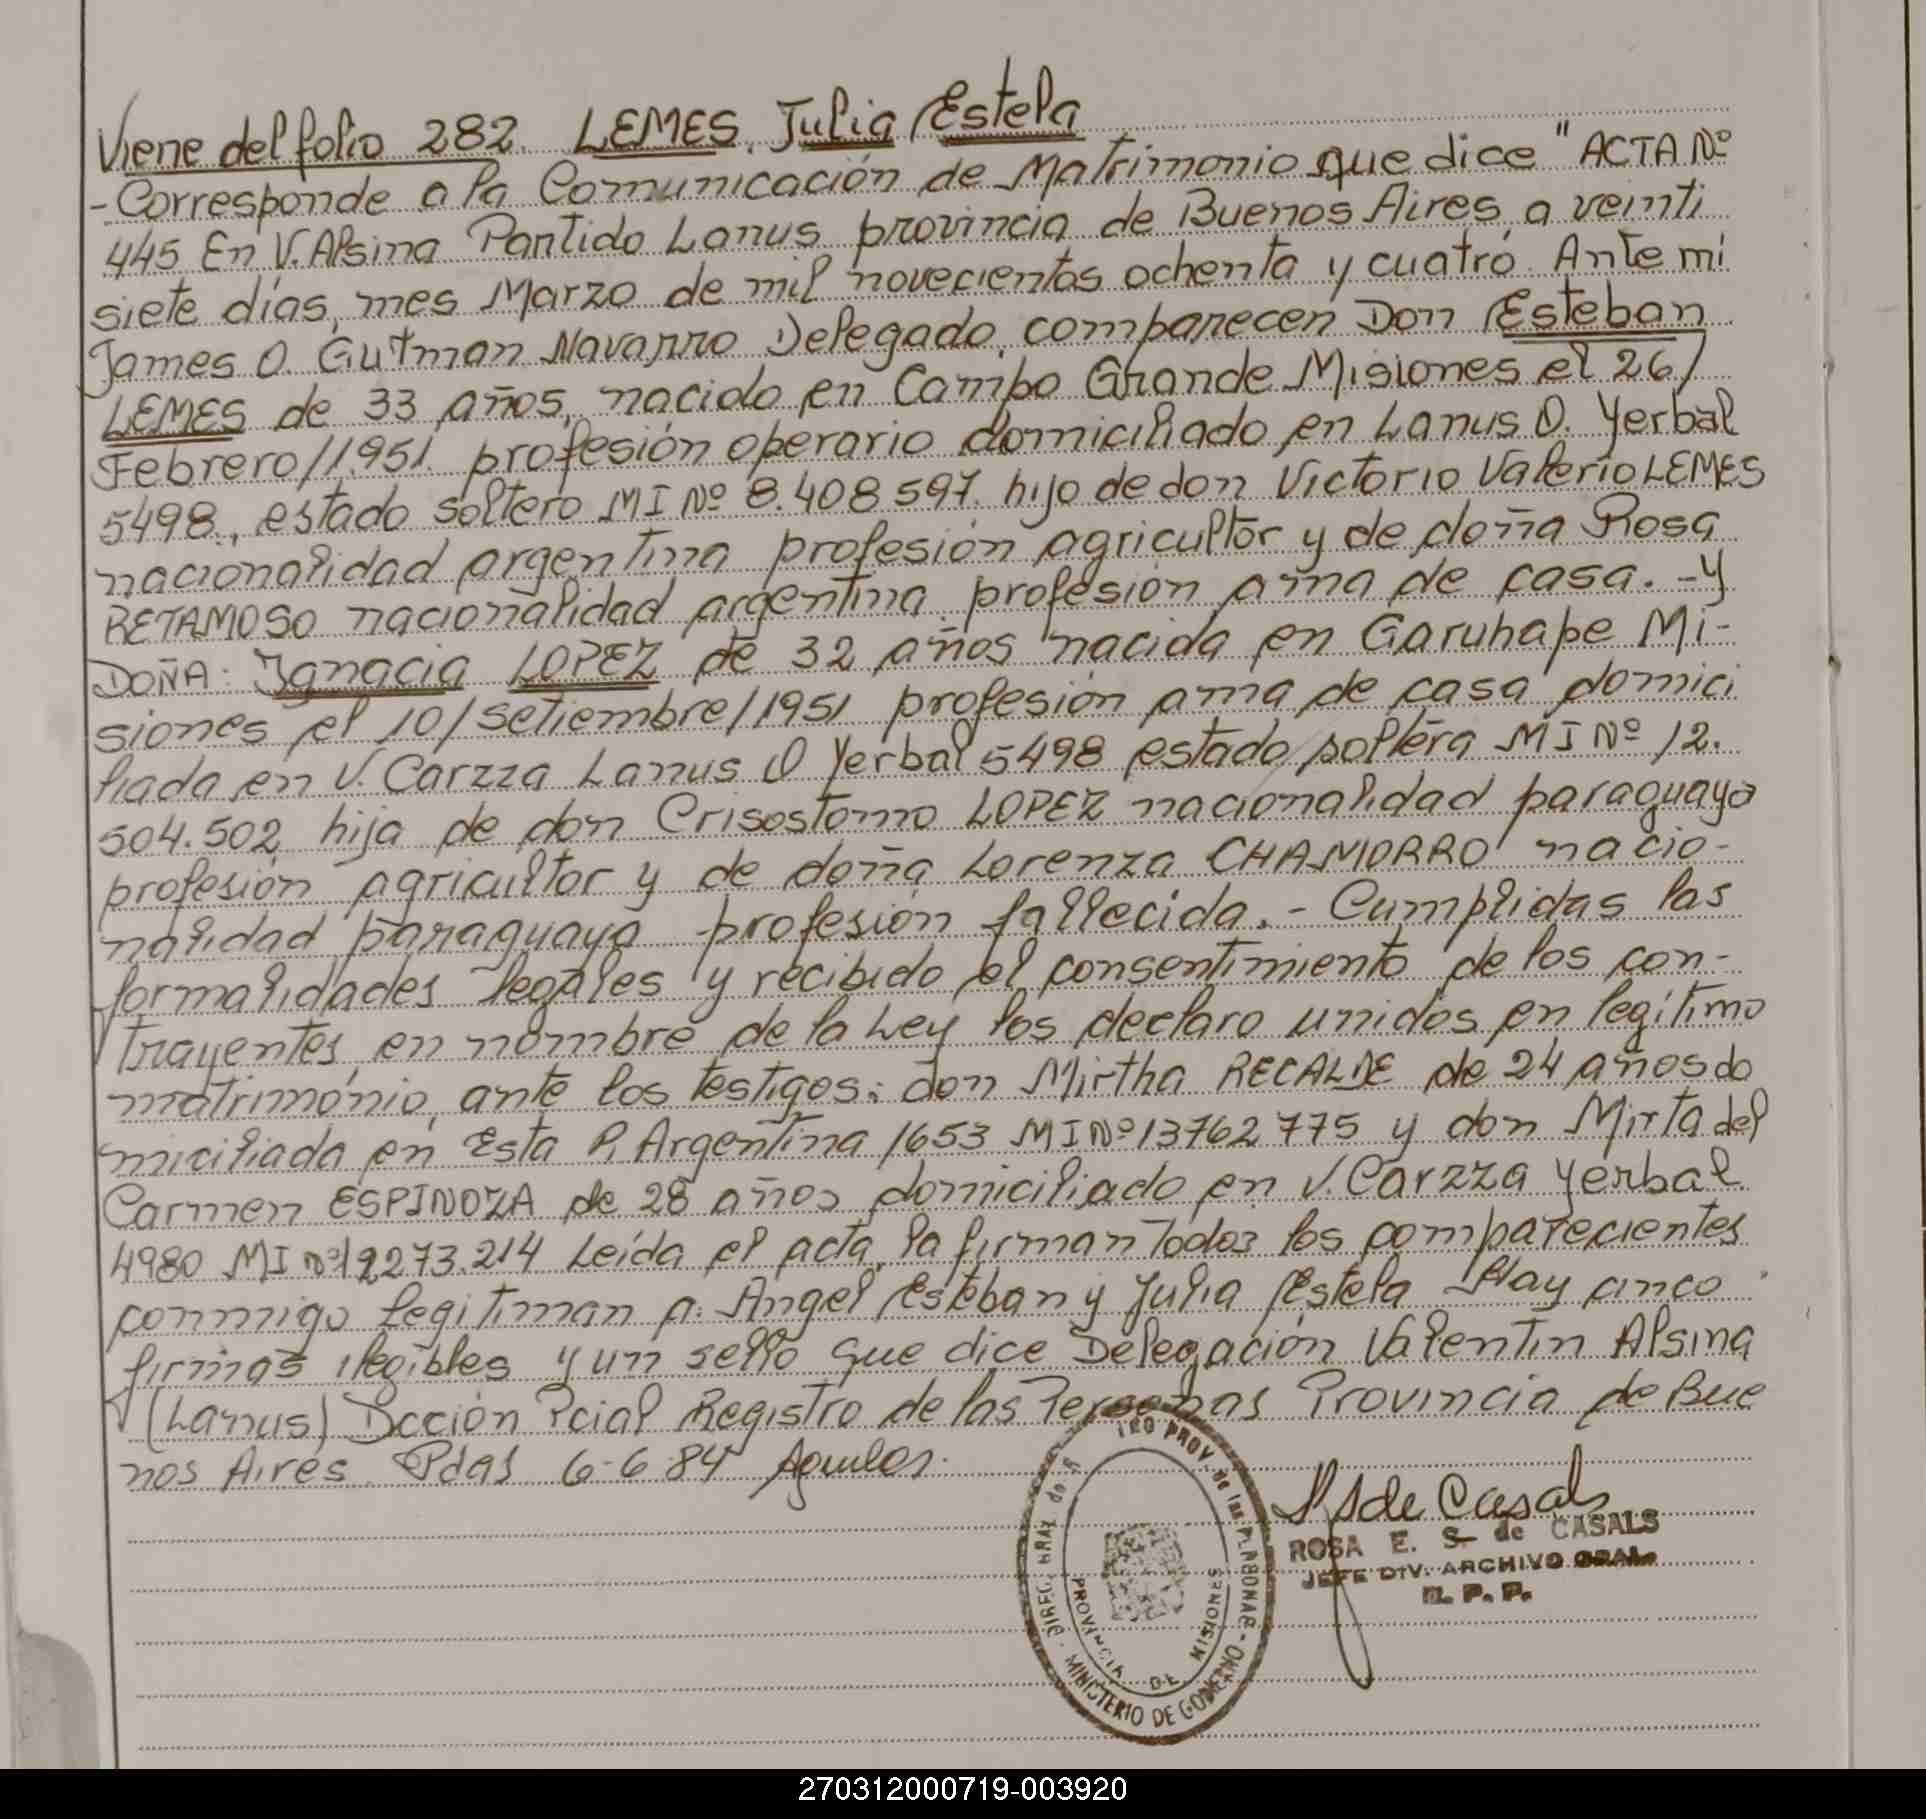 Viene del folio 282. LEMES, Julia Estela
- Corresponde a la Comunicación de Matrimonio que dice "ACTA Nº
445 En V. Alsina Partido Lanus provincia de Buenos Aires, a veinti
siete días, mes Marzo de mil novecientos ochenta y cuatro. Ante mi
James O. Gutman Navarro Delegado, comparecen Don Esteban
LEMES de 33 años, nacido en Campo Grande Misiones el 26/
Febrero/1.951. profesión operario domiciliado en Lanus O. Yerbal
5498., estado soltero MI Nº 8.408.597. hijo de don Victorio Valerio LEMES
nacionalidad argentina profesión agricultor y de doña Rosa
RETAMOSO nacionalidad argentina profesión ama de casa. - y
DOÑA: Ignacia LOPEZ de 32 años nacida en Garuhape Mi-
siones el 10/setiembre/1951 profesión ama de casa domici
liada en V. Carzza Lanus O Yerbal 5498 estado soltera MI Nº 12.
504.502 hija de don Crisostomo LOPEZ nacionalidad paraguaya
profesión agricultor y de doña Lorenza CHAMORRO nacio-
nalidad paraguaya profesión fallecida. - Cumplidas las
formalidades legales y recibido el consentimiento de los con-
trayentes, en nombre de la Ley los declaro unidos en legítimo
matrimonio, ante los testigos: don Mirtha RECALDE de 24 años do
miciliada en Esta P. Argentina 1653 MI Nº 13762775 y don Mirta del
Carmen ESPINOZA de 28 años domiciliado en V. Carzza Yerbal
4980 MI Nº 12273.214 Leída el acta, la firman Todos los comparecientes
conmigo legitiman a: Angel Esteban y Julia Estela Hay cinco
firmas ilegibles y un sello que dice Delegación Valentin Alsina
(Lanus) Dcción Pcial Registro de las Personas Provincia de Bue
nos Aires. Pdas 6-6-84
DIREC. GRAL de R TRO PROV. de las PERSONAS - MINISTERIO DE GOBIERNO
PROVINCIA DE MISIONES
S de Casals
ROSA E. S. de CASALS
JEFE DIV. ARCHIVO GRAL.
R. P. P.
270312000719-003920